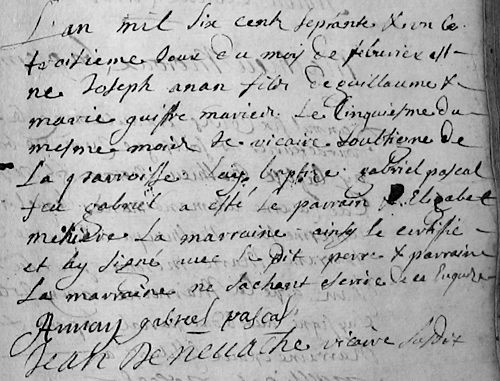 L'an mil six cent septante & un le
troitieme Jour du mois de febvrier est
ne Joseph anan fils de guillaume &
marie guiffre mariez Le Cinquiesme du
mesme mois Je vicaire soubsigne de
La parroisse Lay baptize gabriel pascal
feu gabriel a esté Le parrain & Elizabet
La marraine ainsy le certifie
et ay signé avec le dit perre & parrain
La marraine ne sachant escrire de ce enquise
Annay gabriel pascal
Jean vicaire susdit